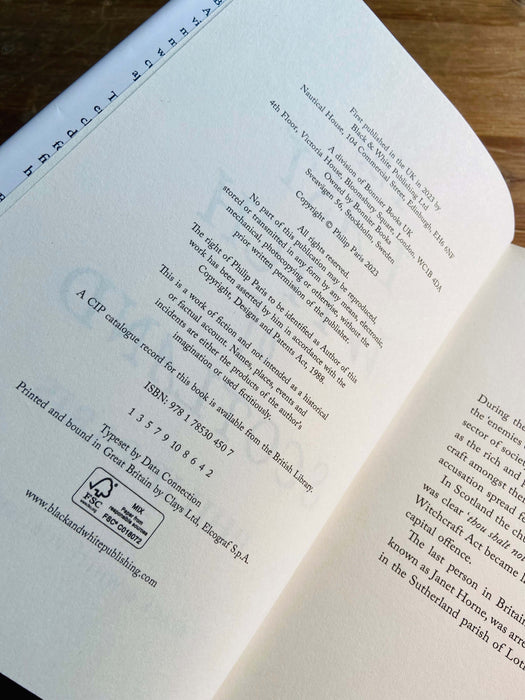 First published in the UK in 2023 by
Black & White Publishing Ltd
Nautical House, 104 Commercial Street, Edinburgh, EH6 6NF
A division of Bonnier Books UK
4th Floor, Victoria House, Bloomsbury Square, London, WC1B 4DA
Owned by Bonnier Books
Sveavägen 56, Stockholm, Sweden
Copyright © Philip Paris 2023
All rights reserved.
No part of this publication may be reproduced,
stored or transmitted in any form by any means, electronic,
mechanical, photocopying or otherwise, without the
prior written permission of the publisher.
The right of Philip Paris to be identified as Author of this
work has been asserted by him in accordance with the
Copyright, Designs and Patents Act, 1988.
This is a work of fiction and not intended as a historical
or factual account. Names, places, events and
incidents are either the products of the author's
imagination or used fictitiously.
A CIP catalogue record for this book is available from the British Library.
ISBN: 978 1 78530 450 7
1 3 5 7 9 10 8 6 4 2
Typeset by Data Connection
Printed and bound in Great Britain by Clays Ltd, Elcograf S.p.A.
FSC
MIX
Paper from
responsible sources
FSC® C018072
www.blackandwhitepublishing.com
During the
the enemies
sector of socie
as the rich and p
craft amongst the
accusation spread
In Scotland the chu
was clear 'thou shalt not
Witchcraft Act became
capital offence.
The last person in Britain
known as Janet Horne, was arre
in the Sutherland parish of Lot